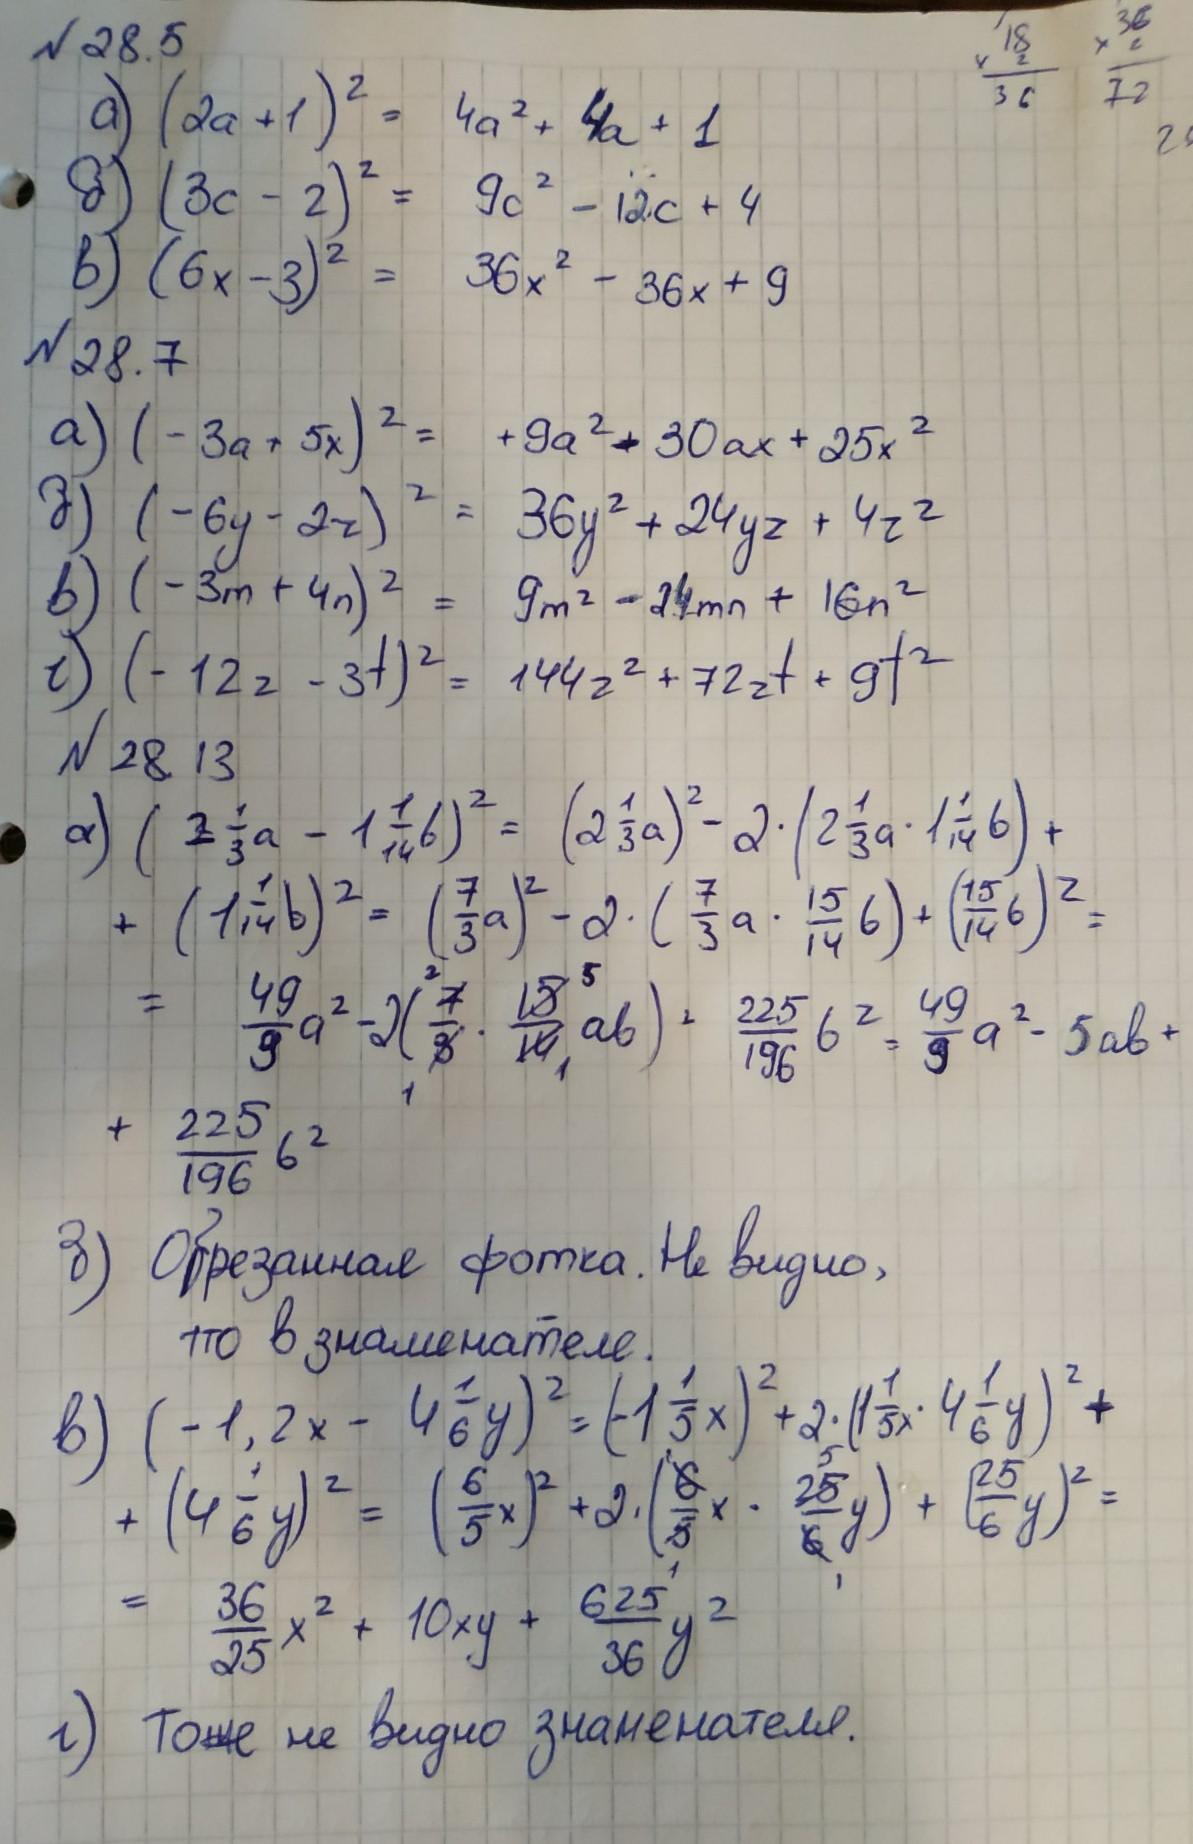 N 28.5
а) (2a + 1)² = 4a² + 4a + 1
б) (3c - 2)² = 9c² - 12c + 4
в) (6x - 3)² = 36x² - 36x + 9
18 × 2 36
36 × 2 72
N 28.7
а) (-3a + 5x)² = +9a² - 30ax + 25x²
б) (-6y - 2z)² = 36y² + 24yz + 4z²
в) (-3m + 4n)² = 9m² - 24mn + 16n²
г) (-12z - 3t)² = 144z² + 72zt + 9t²
N 28.13
а) (2 1/3 a - 1 1/14 b)² = (2 1/3 a)² - 2·(2 1/3 a · 1 1/14 b) +
+ (1 1/14 b)² = (7/3 a)² - 2·(7/3 a · 15/14 b) + (15/14 b)² =
= 49/9 a² - 2(7/3 · 15/14 ab) + 225/196 b² = 49/9 a² - 5ab +
+ 225/196 b²
б) Обрезанная фотка. Не видно,
что в знаменателе.
в) (-1,2x - 4 1/6 y)² = (-1 1/5 x)² + 2·(1 1/5 x · 4 1/6 y)² +
+ (4 1/6 y)² = (6/5 x)² + 2·(6/5 x · 25/6 y) + (25/6 y)² =
= 36/25 x² + 10xy + 625/36 y²
г) Тоже не видно знаменателя.